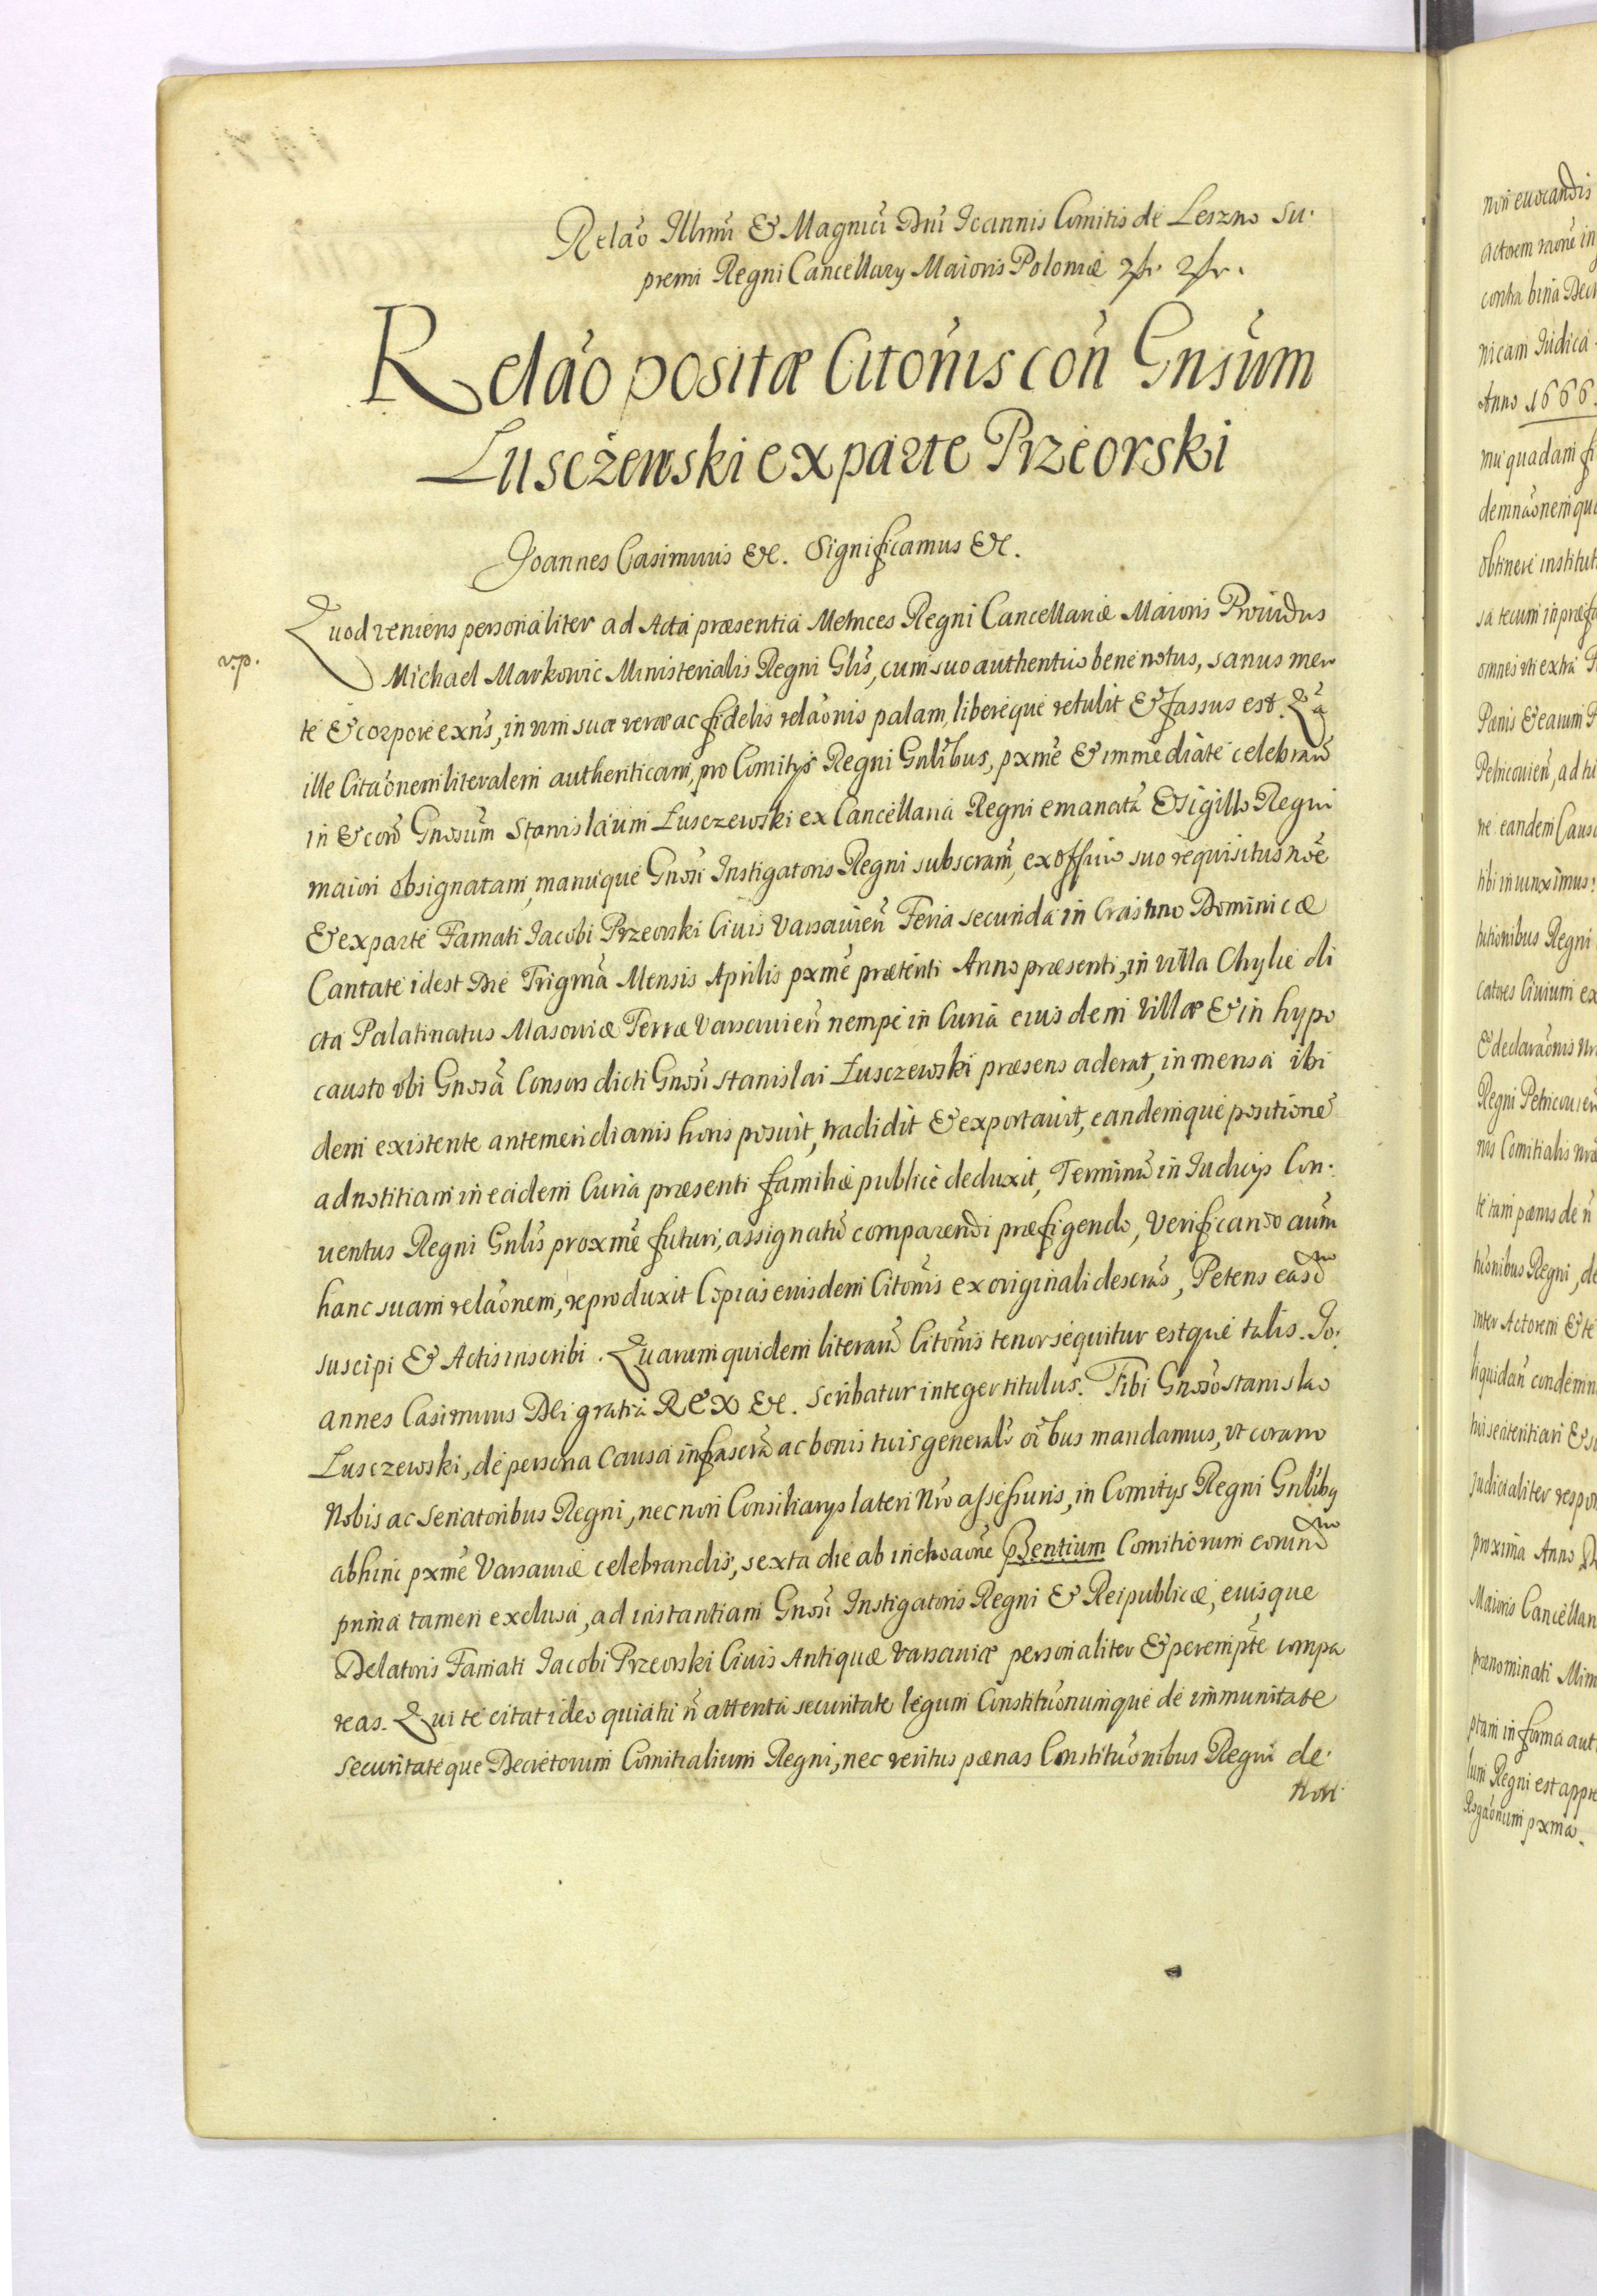 Relaõ Illmi & Magnici Dni Ioannis Comitis de Leszno Su-
premi Regni Cancellarij Maioris Poloniæ
Relaõ positæ Citõnis con Gnsum
Lusczewski ex parte Przeorski
Joannes Casimirus &c. Significamus &c.
Quod veniens personaliter ad Acta præsentia Metrices Regni Cancellariæ Maioris Prouidus
v.p.
Michael Markowic Ministerialis Regni Glis, cum suo authentico bene notus, sanus men
te & corpore exns, in vim suæ veræ ac fidelis relaõnis palam, libereque retulit & fassus est. Qa
ille Citaõnem literalem authenticam, pro Comitijs Regni Gnlibus, pxme & immediate celebran
in & con Gnosum Stanislaum Lusczewski ex Cancellaria Regni emanatã & sigillo Regni
maiori obsignatam, manuque Gnosi Instigatoris Regni subscram, ex officio suo requisitus noe
& ex parte Famati Jacobi Przeorski Ciuis Varsauien Feria secunda in Crastino Dominicæ
Cantate idest Die Trigma Mensis Aprilis pxme præteriti Anno præsenti, in villa Chylie di
cta Palatinatus Masouiæ Terræ Varsauien nempe in Curia eius dem villæ & in hypo
causto vbi Gnosã Consors dicti Gnosi Stanislai Lusczewski præsens aderat, in mensa ibi
dem existente antemeridianis horis posuit, tradidit & exportauit, eandemque positionẽ
ad notitiam in eadem Curia præsenti familiæ publice deduxit, Terminũ in Iudicijs Con-
uentus Regni Gnlis proxme futuri, assignatũ comparendi præfigendo, Verificando aũm
hanc suam relaõnem, reproduxit Copias eiusdem Citõnis ex originali descras, Petens easd
suscipi & Actis inscribi. Quarum quidem literarũ Citõnis tenor sequitur estque talis. Jo-
annes Casimirus Dei gratia REX &c. scribatur integer titulus. Tibi Gnoso Stanislao
Lusczewski, de persona Causa infrascrã ac bonis tuis generalr oibus mandamus, vt coram
Nobis ac Senatoribus Regni, nec non Consiliarijs lateri Nro assessuris, in Comitijs Regni Gnlibg
abhinc pxme Varsauiæ celebrandis, sexta die ab inchoaõne pZentium Comitiorum eorund
prima tamen exclusa, ad instantiam Gnosi Instigatoris Regni & Reipublicæ, eiusque
Delatoris Famati Jacobi Przeorski Ciuis Antiquæ Varsauiæ personaliter & perempte compa
reas. Qui te citat ideo quia tu ñ attenta securitate legum Constituõnumque de immunitate
securitateque Decretorum Comitialium Regni, nec veritus pænas Constituõnibus Regni de
non
non euocandis
actorem raone in
contra bina Decr
nicam Iudica
Anno 1666
mu quadam fi
demnaõnem qua
obtinere institut
sa tecum in præfa
omnes vti extra
Pænis & earum
Petricouien, ad tu
re eandem Caus
tibi iniunximus
tutionibus Regni
catores Ciuium ex
& declaraõnis
Regni Petricouien
nis Comitialis
te tam pænis de
tuõnibus Regni, de
inter Actorem & te
liquidan condemn
tui sententiari & su
judicialiter respon
proxima Anno D
Maioris Cancellari
prænominati Min
ptam in forma aut
lum Regni est appre
Rogaõnum pxma.